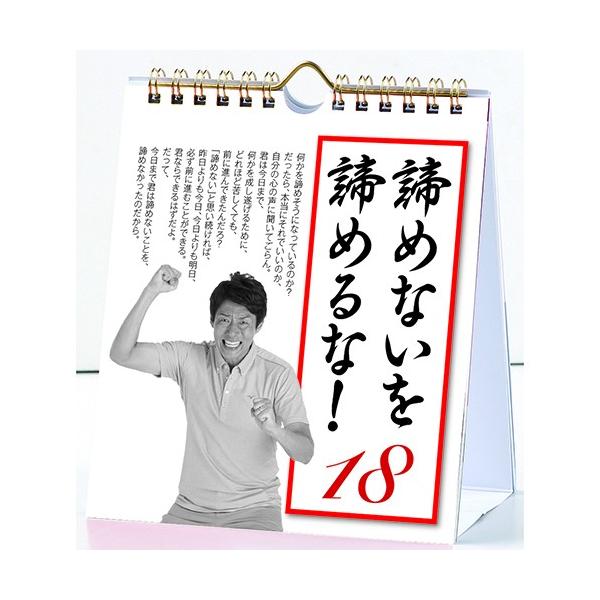 諦めないを
諦めるな！
18
何かを諦めそうになっているのか？
だったら、本当にそれでいいのか、
自分の心の声に聞いてごらん。
君は今日まで、
何かを成し遂げるために、
どれほど苦しくても、
前に進んできたんだろ？
「諦めない」と思い続ければ、
昨日よりも今日、今日よりも明日、
必ず前に進むことができる。
君ならできるはずだよ。
だって、
今日まで君は諦めないことを、
諦めなかったのだから。